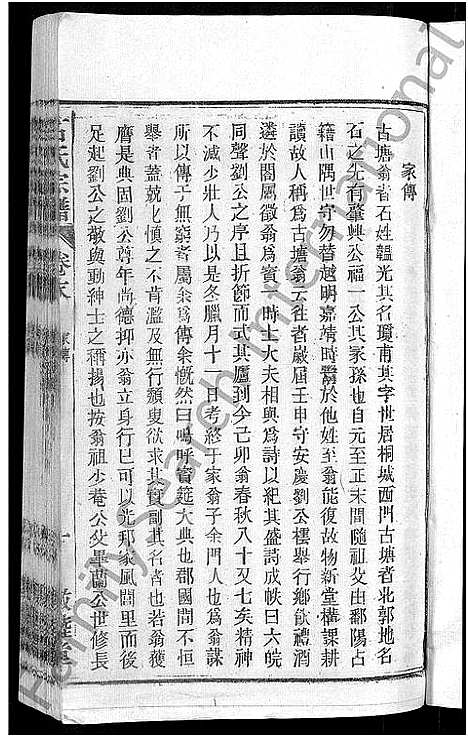 家傳
古塘翁者石姓韞光其名瓊甫其字世居桐城西門古塘者北郭地名
石之先有肇興公福一公其家孫也自元至正末間隨祖父由鄱陽占
籍山隅世守勿替越明嘉靖時鬻於他姓至翁能復故物新堂構課耕
讀故人稱為古塘翁云往者歲屆壬申守安慶劉公櫄舉行鄉飲禮酒
遴於闔屬徵翁為賓一時士大夫相與為詩以紀其盛詩成帙曰六皖
同聲劉公之序且折節而式其廬到今己卯翁春秋八十又七矣精神
不減少壯人乃以是冬臘月十一日考終于家翁子余門人也為翁謀
所以傳于無窮者屬余為傳余慨然曰嗚呼賓筵大典也郡國間不恒
舉者蓋兢兢慎之不肯濫及無行頹叟欲求其實副其名者也若翁獲
膺是典固劉公尊年尚德抑亦翁立身行己可以光邦家風閭里而後
足起劉公之敬與動紳士之稱揚也按翁祖少菴公父畢蘭公世修長
石氏宗譜
卷之末
家傳
Family Search International